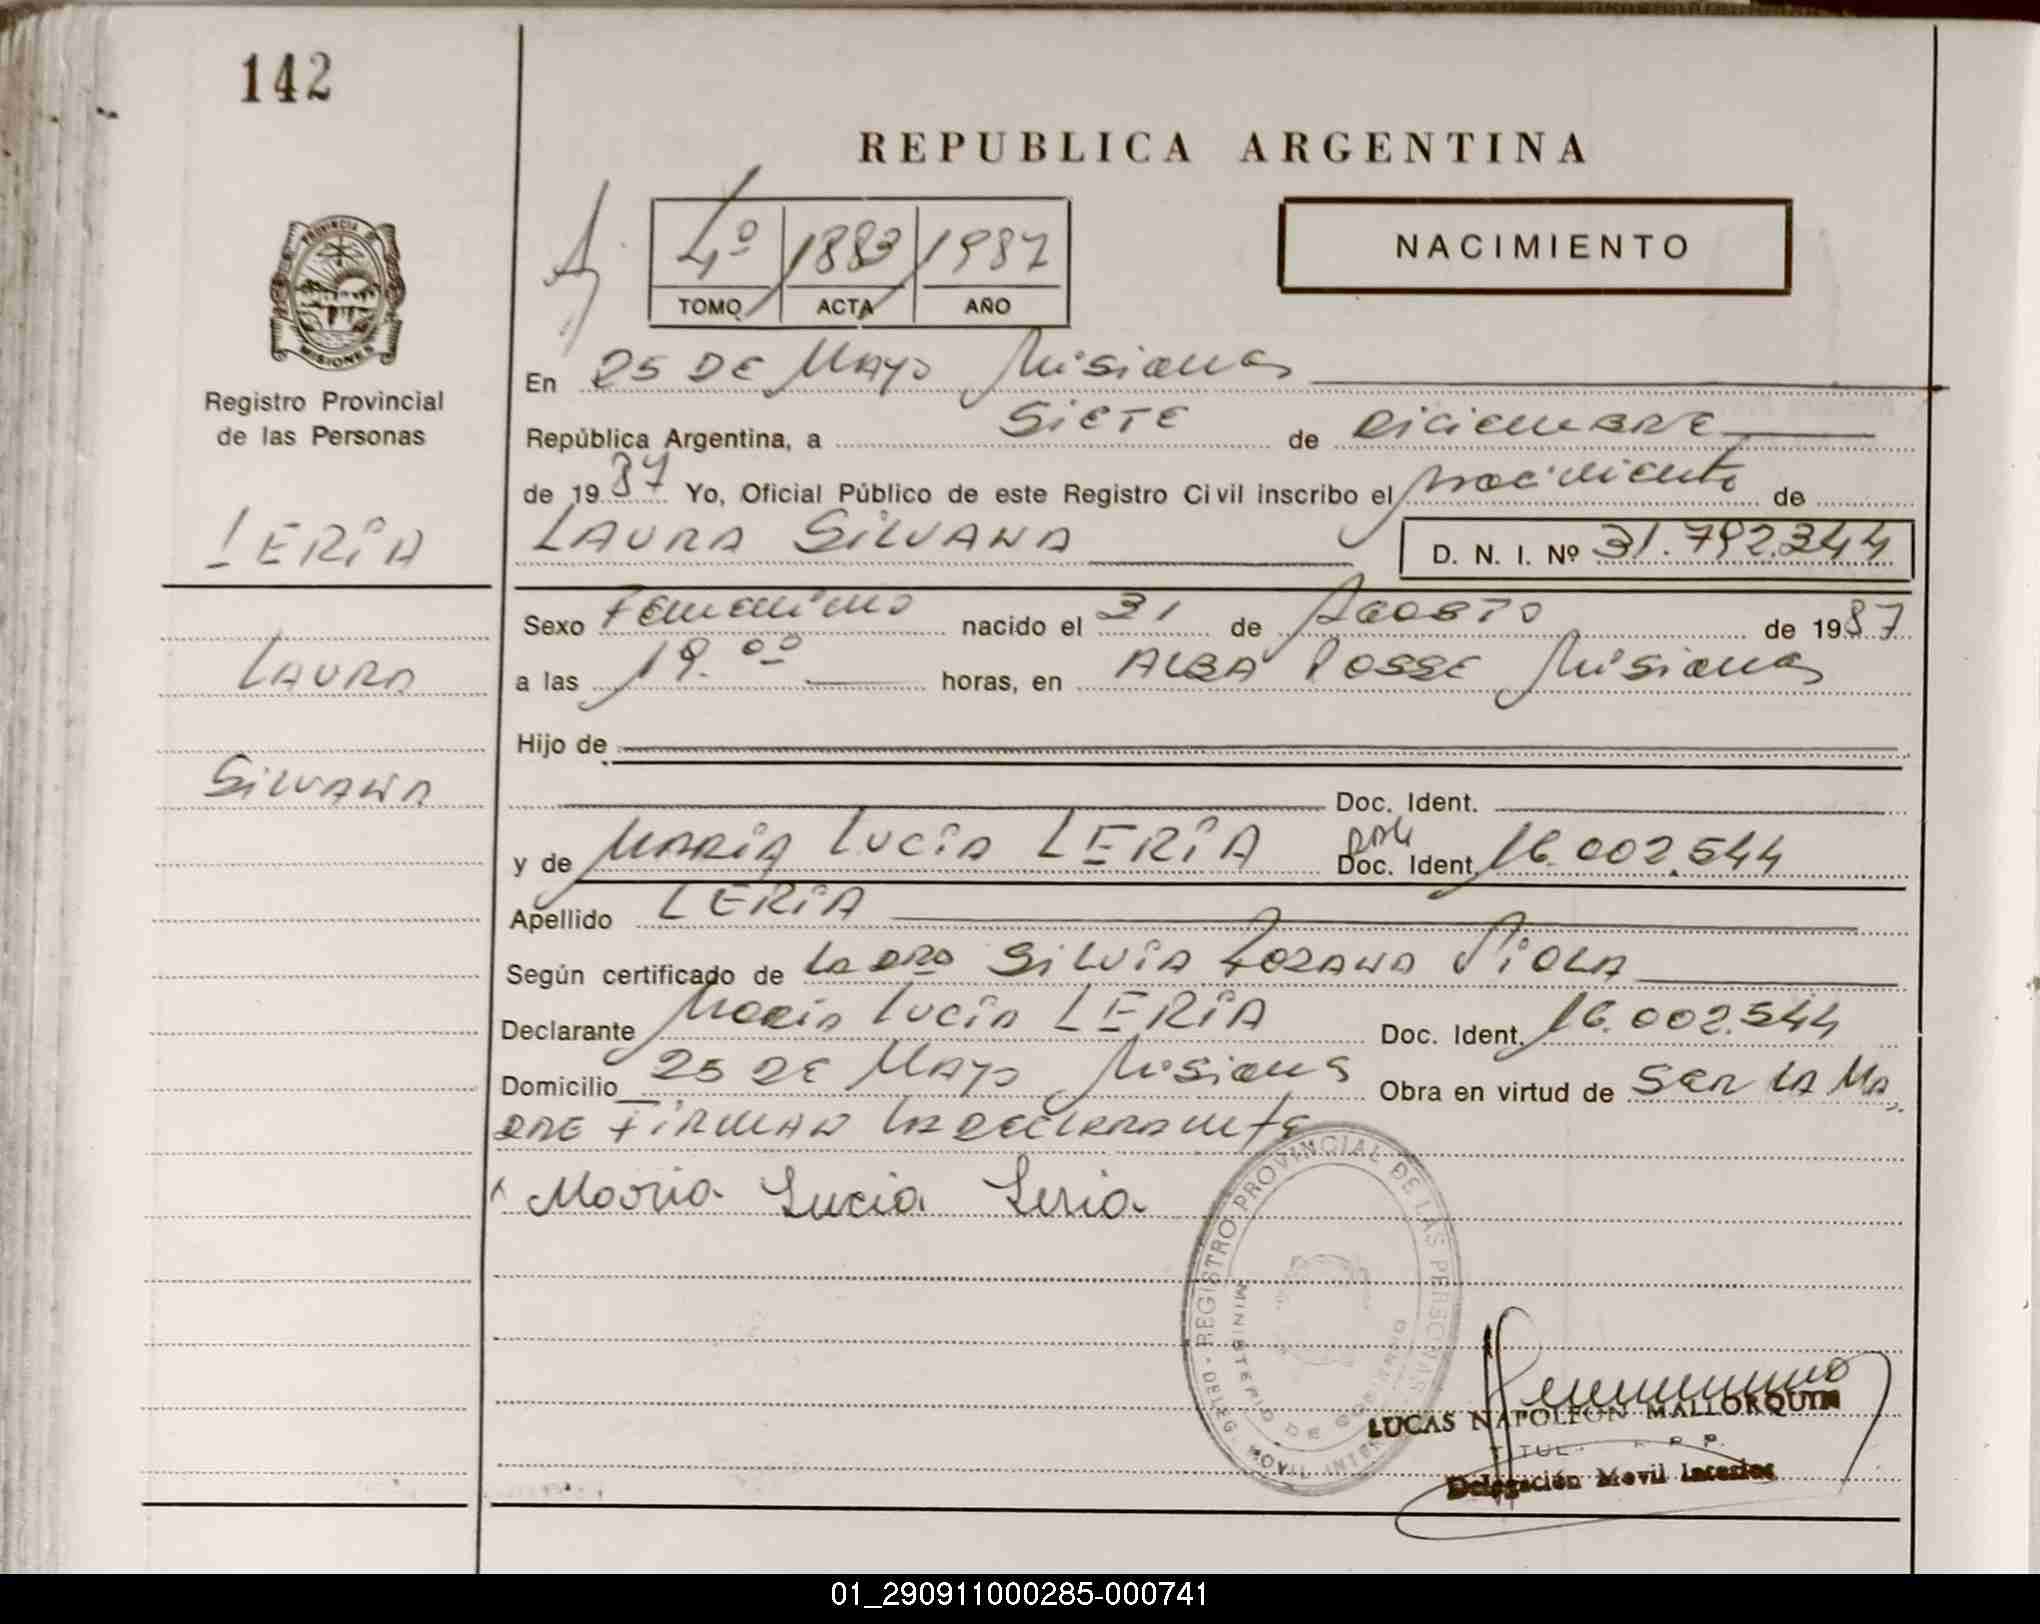 142
REPUBLICA ARGENTINA
4º 1883 1987
TOMO ACTA AÑO
NACIMIENTO
PROVINCIA DE
MISIONES
Registro Provincial
de las Personas
LERÍA
LAURA
SILVANA
En 25 DE MAYO Misiones
República Argentina, a SIETE de DICIEMBRE
de 1987 Yo, Oficial Público de este Registro Civil inscribo el nacimiento de
LAURA SILVANA D. N. I. Nº 31.792.344
Sexo Femenino nacido el 31 de AGOSTO de 1987
a las 19.00 horas, en ALBA POSSE Misiones
Hijo de
Doc. Ident.
y de MARÍA LUCÍA LERÍA Doc. Ident. 16.002.544
Apellido LERÍA
Según certificado de la DRA SILVIA PIOLA
Declarante María LUCÍA LERÍA Doc. Ident. 16.002.544
Domicilio 25 DE MAYO Misiones Obra en virtud de SER LA MA
DRE FIRMAN LA DECLARANTE
x Maria Lucia Leria
REGISTRO PROVINCIAL DE LAS PERSONAS
MINISTERIO DE GOBIERNO
DELEG. MOVIL INTER
LUCAS NAPOLEON MALLORQUIN
TITUL. R. P. P.
Delegación Movil Interior
01_290911000285-000741